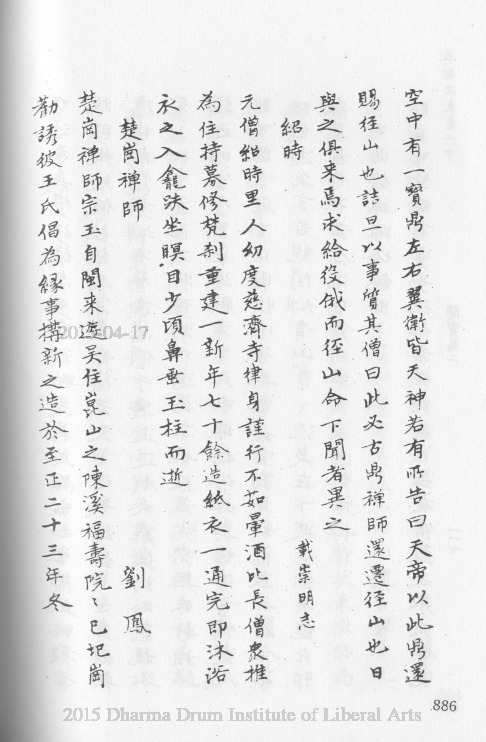 空中有一寶鼎左右翼衛皆天神若有所告曰天帝以此鼎還
賜徑山也詰旦以事質其僧曰此必古鼎禪師還遷徑山也日
與之俱來焉求給役俄而徑山命下聞者異之
載崇明志
紹時
元僧紹時里人幼度慈濟寺律身謹行不茹暈酒比長僧衆推
為住持募修梵刹重建一新年七十餘造紙衣一通完即沐浴
衣之入龕趺坐瞑目少頃鼻垂玉柱而逝
楚崗禪師
劉鳳
楚崗禪師宗玉自閩來遊吳住崑山之陳溪福壽院〻已圮崗
勸誘彼王氏倡為緣事搆新之造於至正二十三年冬
2015-04-17
886
2015 Dharma Drum Institute of Liberal Arts